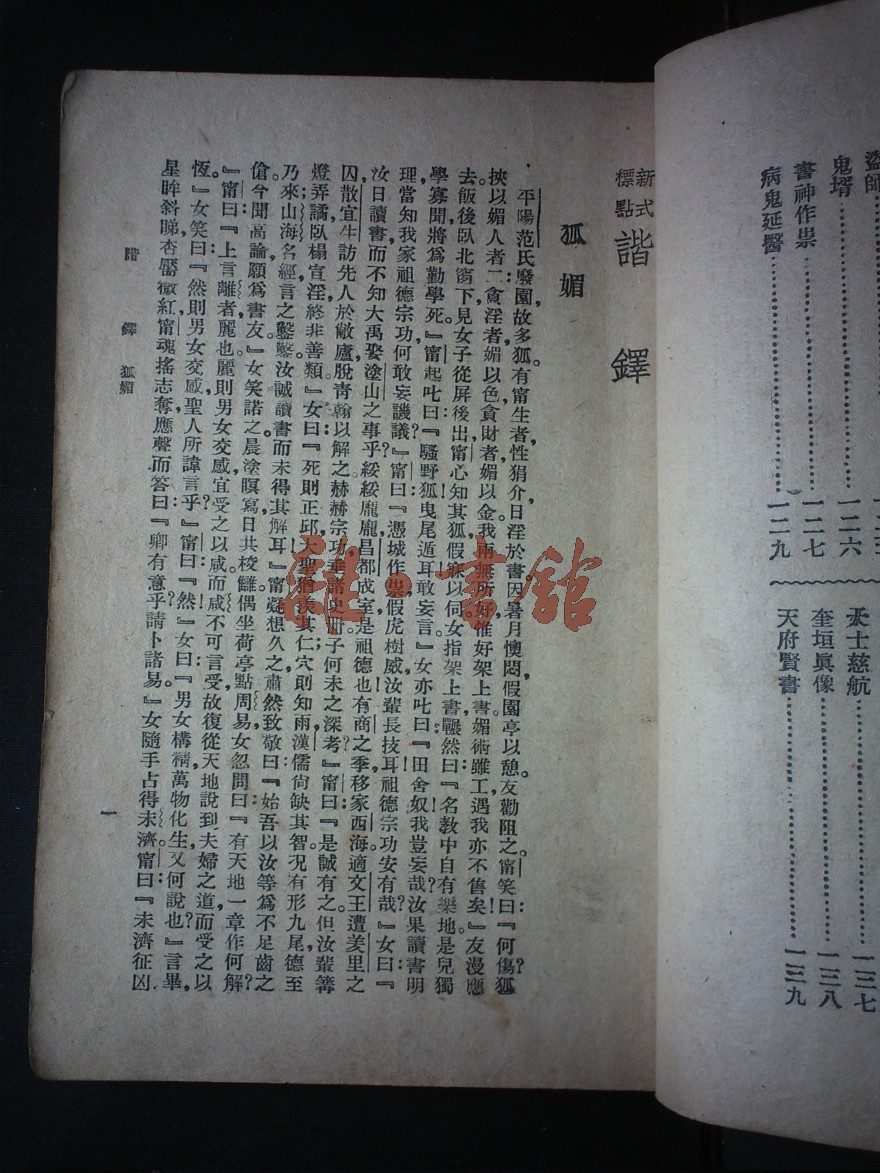 盜師
鬼壻……一二六
書神作祟……一二七
病鬼延醫……一二九
大士慈航……一三七
奎垣眞像……一三八
天府賢書……一三九
新式標點 諧鐸
狐媚
平陽范氏廢園，故多狐。有甯生者，性狷介，日淫於書，因暑月懊悶，假園亭以憩。友勸阻之。甯笑曰：『何傷？狐
挾以媚人者二：貪淫者媚以色，貪財者媚以金。我兩無所好，惟好架上書，媚術雖工，遇我亦不售矣！』友漫應
去。飯後臥北窗下，見女子從屏後出，甯心知其狐，假寐以伺。女指架上書囅然曰：『名教中自有樂地，是兒獨
學寡聞，將爲勤學死！』甯起叱曰：『騷野狐曳尾遁耳，敢妄言！』女亦叱曰：『田舍奴！我豈妄哉？汝果讀書明
理，當知我家祖德宗功，何敢妄譏議？』甯曰：『憑城作祟，假虎樹威，汝輩長技耳！祖德宗功安有哉？』女曰：『
汝日讀書，而不知大禹娶塗山之事乎？綏綏龐龐，昌都成室，是祖德也。有商之季，移家西海，適文王遭羑里之
囚，散宜生訪先人於敝廬，脫靑翰以解之。赫赫宗功，垂諸史册，子何未之深考？』甯曰：『是誠有之，但汝輩篝
燈弄譎，臥榻宣淫，終非善類！』女曰：『死則正邱，大聖猶挨其仁，穴則知雨，漢儒尙缺其智。況有形九尾，德至
乃來，山海名經，言之鑿鑿，汝誠讀書而未得其解耳！』甯凝想久之，肅然致敬曰：『始吾以汝等爲不足齒之
傖，今聞高論，願爲書友。』女笑諾之。晨塗暝寫，日共校讎。偶坐荷亭點周易，女忽問曰：『有天地一章作何解？
』甯曰：『上言離者，麗也。麗則男女交感，宜受之以咸，而咸不可言受，故復從天地說到夫婦之道，而受之以
恆。』女笑曰：『然則男女交感，聖人所諱言乎？』甯曰：『然！』女曰：『男女構精，萬物化生，又何說也？』言畢，
星眸斜睇，杏靨微紅，甯魂搖志奪，應聲而答曰：『卿有意乎？請卜諸易。』女隨手占得未濟。甯曰：『未濟征凶
諧鐸 狐媚
一
雜·書館